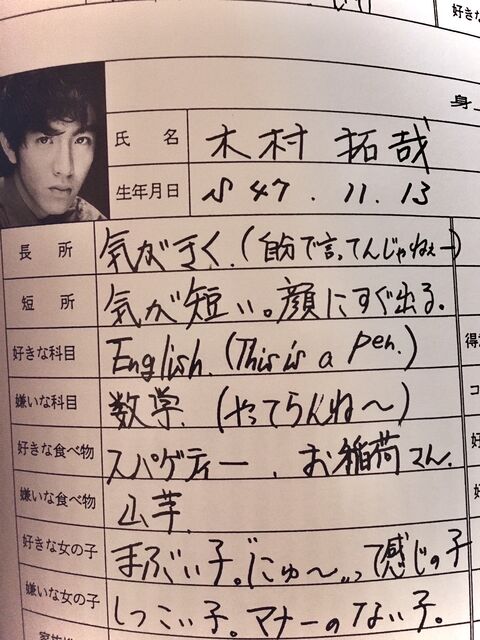 好きな
身上
氏 名 木村 拓哉
生年月日 S 47. 11. 13
長 所 気がきく.(自分で言ってんじゃねぇー)
短 所 気が短い。顔にすぐ出る。
好きな科目 English. (This is a pen.)
得意
嫌いな科目 数学. (やってらんね〜)
コ
好きな食べ物 スパゲティー、お稲荷さん.
好
嫌いな食べ物 山芋.
好
好きな女の子 まぶい子。"にゅ〜"って感じの子
嫌いな女の子 しつこい子。マナーのない子。